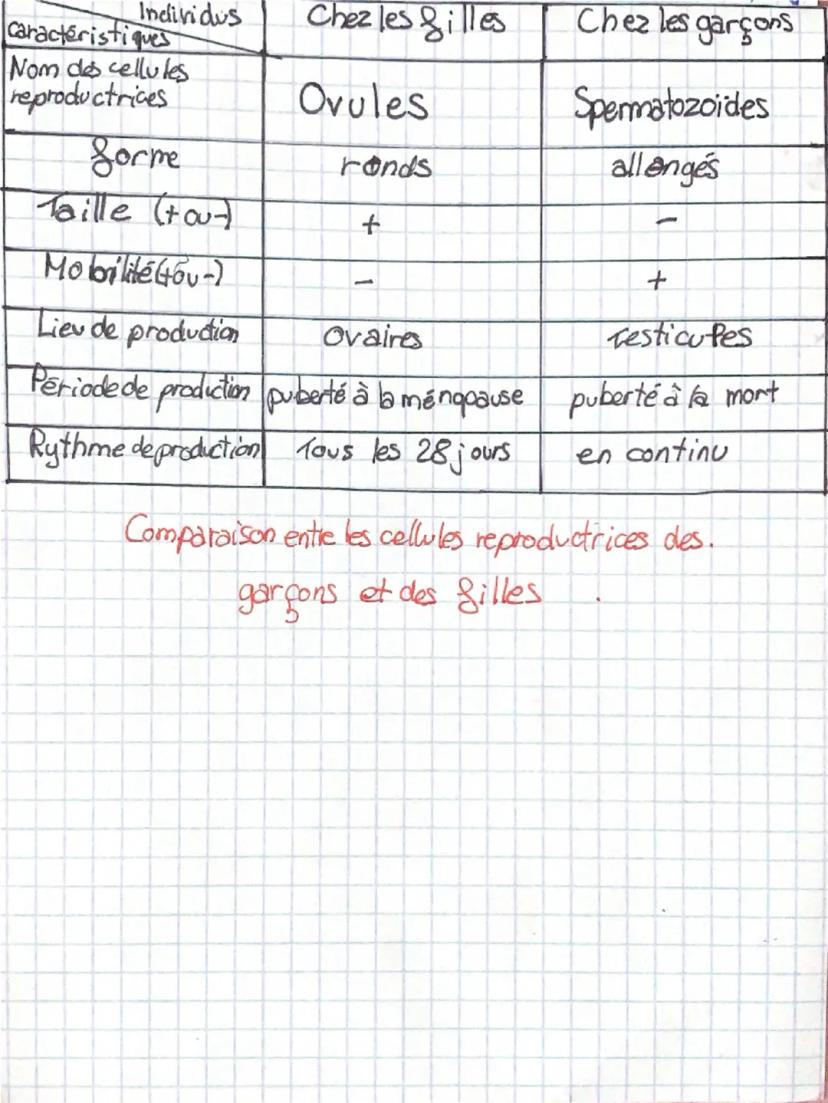 Individus
Caractéristiques
Chez les filles
Chez les garçons
Nom des cellules
reproductrices
Ovules
Spermatozoïdes
forme
ronds
allongés
Taille (+ou-)
+
-
Mobilité(+ou-)
-
+
Lieu de production
Ovaires
Testicules
Période de production
puberté à la ménopause
puberté à la mort
Rythme de production
Tous les 28 jours
en continu
Comparaison entre les cellules reproductrices des.
garçons et des filles .